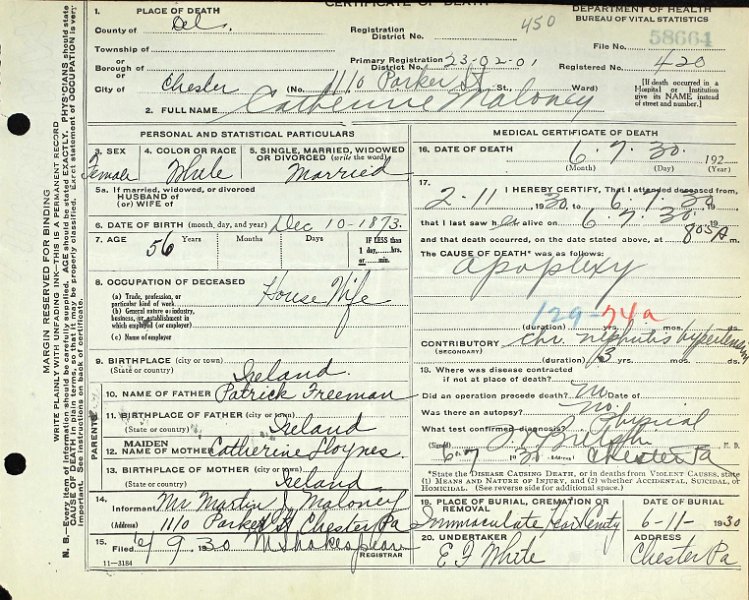 CERTIFICATE OF DEATH
1. PLACE OF DEATH
County of Del.
Township of
or
Borough of
or
City of Chester
Registration District No. 450
Primary Registration District No. 23-02-01
(No. 1110 Parker St St., Ward)
DEPARTMENT OF HEALTH
BUREAU OF VITAL STATISTICS
File No. 58664
Registered No. 420
[If death occurred in a Hospital or Institution give its NAME instead of street and number.]
2. FULL NAME Catherine Maloney
PERSONAL AND STATISTICAL PARTICULARS
3. SEX Female
4. COLOR OR RACE White
5. SINGLE, MARRIED, WIDOWED OR DIVORCED (write the word) Married
5a. If married, widowed, or divorced
HUSBAND of
(or) WIFE of
6. DATE OF BIRTH (month, day, and year) Dec 10-1873.
7. AGE 56 Years Months Days
IF LESS than 1 day,....hrs. or....min.
8. OCCUPATION OF DECEASED House Wife
(a) Trade, profession, or particular kind of work
(b) General nature of industry, business, or establishment in which employed (or employer)
(c) Name of employer
9. BIRTHPLACE (city or town)
(State or country) Ireland.
PARENTS
10. NAME OF FATHER Patrick Freeman
11. BIRTHPLACE OF FATHER (city or town)
(State or country) Ireland
12. MAIDEN NAME OF MOTHER Catherine
13. BIRTHPLACE OF MOTHER (city or town)
(State or country) Ireland
14. Informant Mr Martin J. Maloney
(Address) 1110 Parker St Chester Pa
15. Filed 6/9 1930 M Shakespeare REGISTRAR
11-3184
MEDICAL CERTIFICATE OF DEATH
16. DATE OF DEATH 6. 7. 30. 192
(Month) (Day) (Year)
17. I HEREBY CERTIFY, That I attended deceased from,
2-11 1930 to 6-7-30 19
that I last saw her alive on 6. 7. 30. 19
and that death occurred, on the date stated above, at 8:05 A m.
The CAUSE OF DEATH* was as follows:
Apoplexy
129-74a
(duration) yrs. mos. ds.
CONTRIBUTORY (SECONDARY) Chr. nephritis hypertension
(duration) 3 yrs. mos. ds.
18. Where was disease contracted if not at place of death?
Did an operation precede death? no Date of
Was there an autopsy? no.
What test confirmed diagnosis? Physical
(Signed) M. D.
6-7 1930 (Address) Chester Pa
*State the DISEASE CAUSING DEATH, or in deaths from VIOLENT CAUSES, state (1) MEANS AND NATURE OF INJURY, and (2) whether ACCIDENTAL, SUICIDAL, or HOMICIDAL. (See reverse side for additional space.)
19. PLACE OF BURIAL, CREMATION OR REMOVAL Immaculate Heart Cemty
DATE OF BURIAL 6-11-1930
20. UNDERTAKER E F White
ADDRESS Chester Pa
MARGIN RESERVED FOR BINDING
WRITE PLAINLY WITH UNFADING INK—THIS IS A PERMANENT RECORD
N. B.—Every item of information should be carefully supplied. AGE should be stated EXACTLY. PHYSICIANS should state CAUSE OF DEATH in plain terms, so that it may be properly classified. Exact statement of OCCUPATION is very important. See instructions on back of certificate.